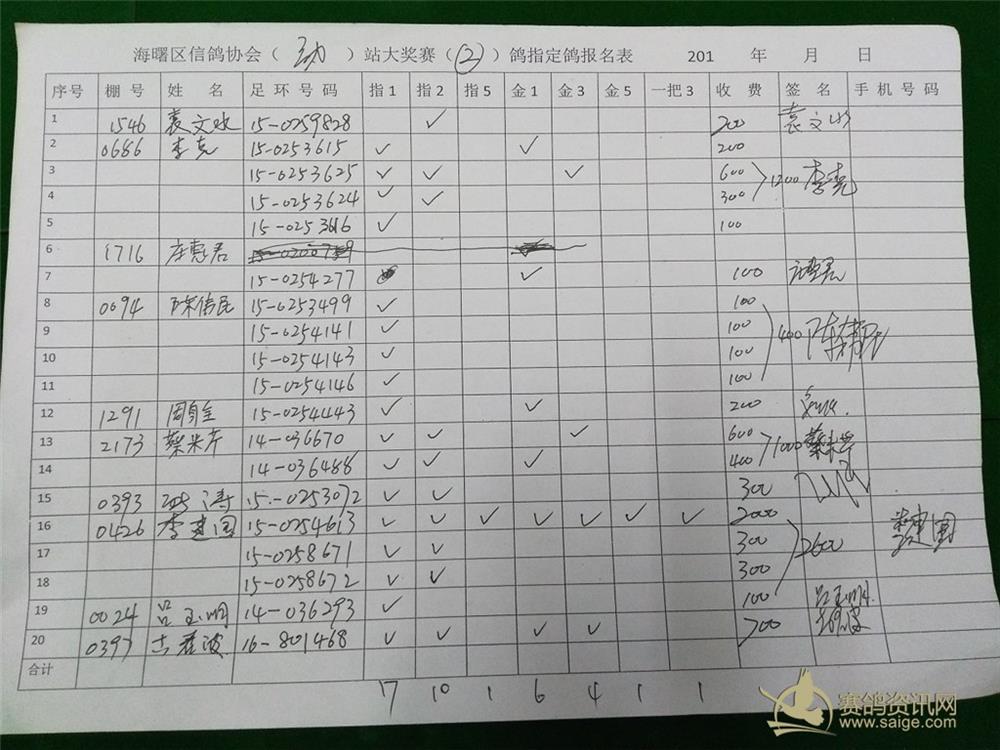 海曙区信鸽协会（ ）站大奖赛（②）鸽指定鸽报名表 201 年 月 日
序号 棚号 姓名 足环号码 指1 指2 指5 金1 金3 金5 一把3 收费 签名 手机号码
1 1546 袁文 15-0259828 ✓ 200 袁文
2 0686 李克 15-0253615 ✓ ✓ 200
3 15-0253625 ✓ ✓ ✓ 600 1200 李克
4 15-0253624 ✓ ✓ 300
5 15-0253616 ✓ 100
6 1716 庄惠君
7 15-0254277 ✓ 100
8 0094 陈信民 15-0253499 ✓ 100
9 15-0254141 ✓ 100 400
10 15-0254143 ✓ 100
11 15-0254146 ✓ 100
12 1291 15-0254443 ✓ ✓ 200
13 2173 蔡米芹 14-036670 ✓ ✓ ✓ 600 1000 蔡米芹
14 14-036488 ✓ ✓ ✓ 400
15 0393 涛 15-0253072 ✓ ✓ 300
16 0426 李建国 15-0254613 ✓ ✓ ✓ ✓ ✓ ✓ ✓ 2000 李建国
17 15-0258671 ✓ ✓ 300 2600
18 15-0258672 ✓ ✓ 300
19 0024 吕玉明 14-036293 ✓ 100 吕玉明
20 0397 波 16-801468 ✓ ✓ ✓ ✓ 700
合计
17 10 1 6 4 1 1
赛鸽资讯网
www.saige.com